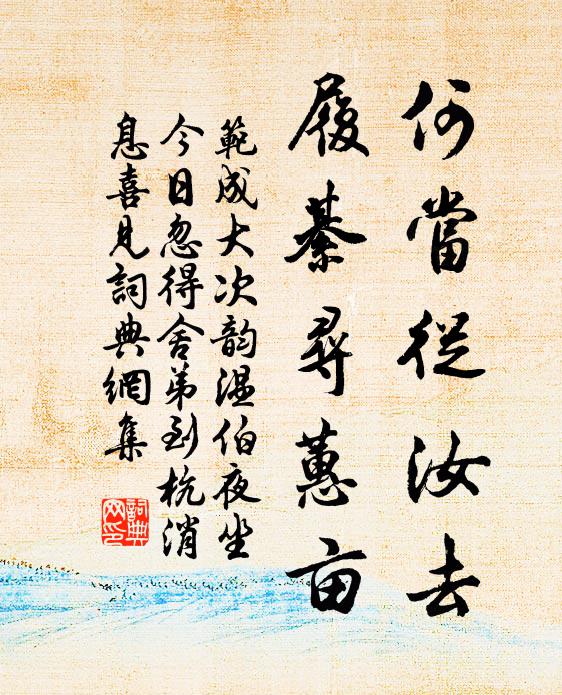 何當從汝去
履綦尋蕙亩
範成大次韵溫伯夜坐
今日忽得舍弟到杭消
息喜見詞典網集
詞典
网印